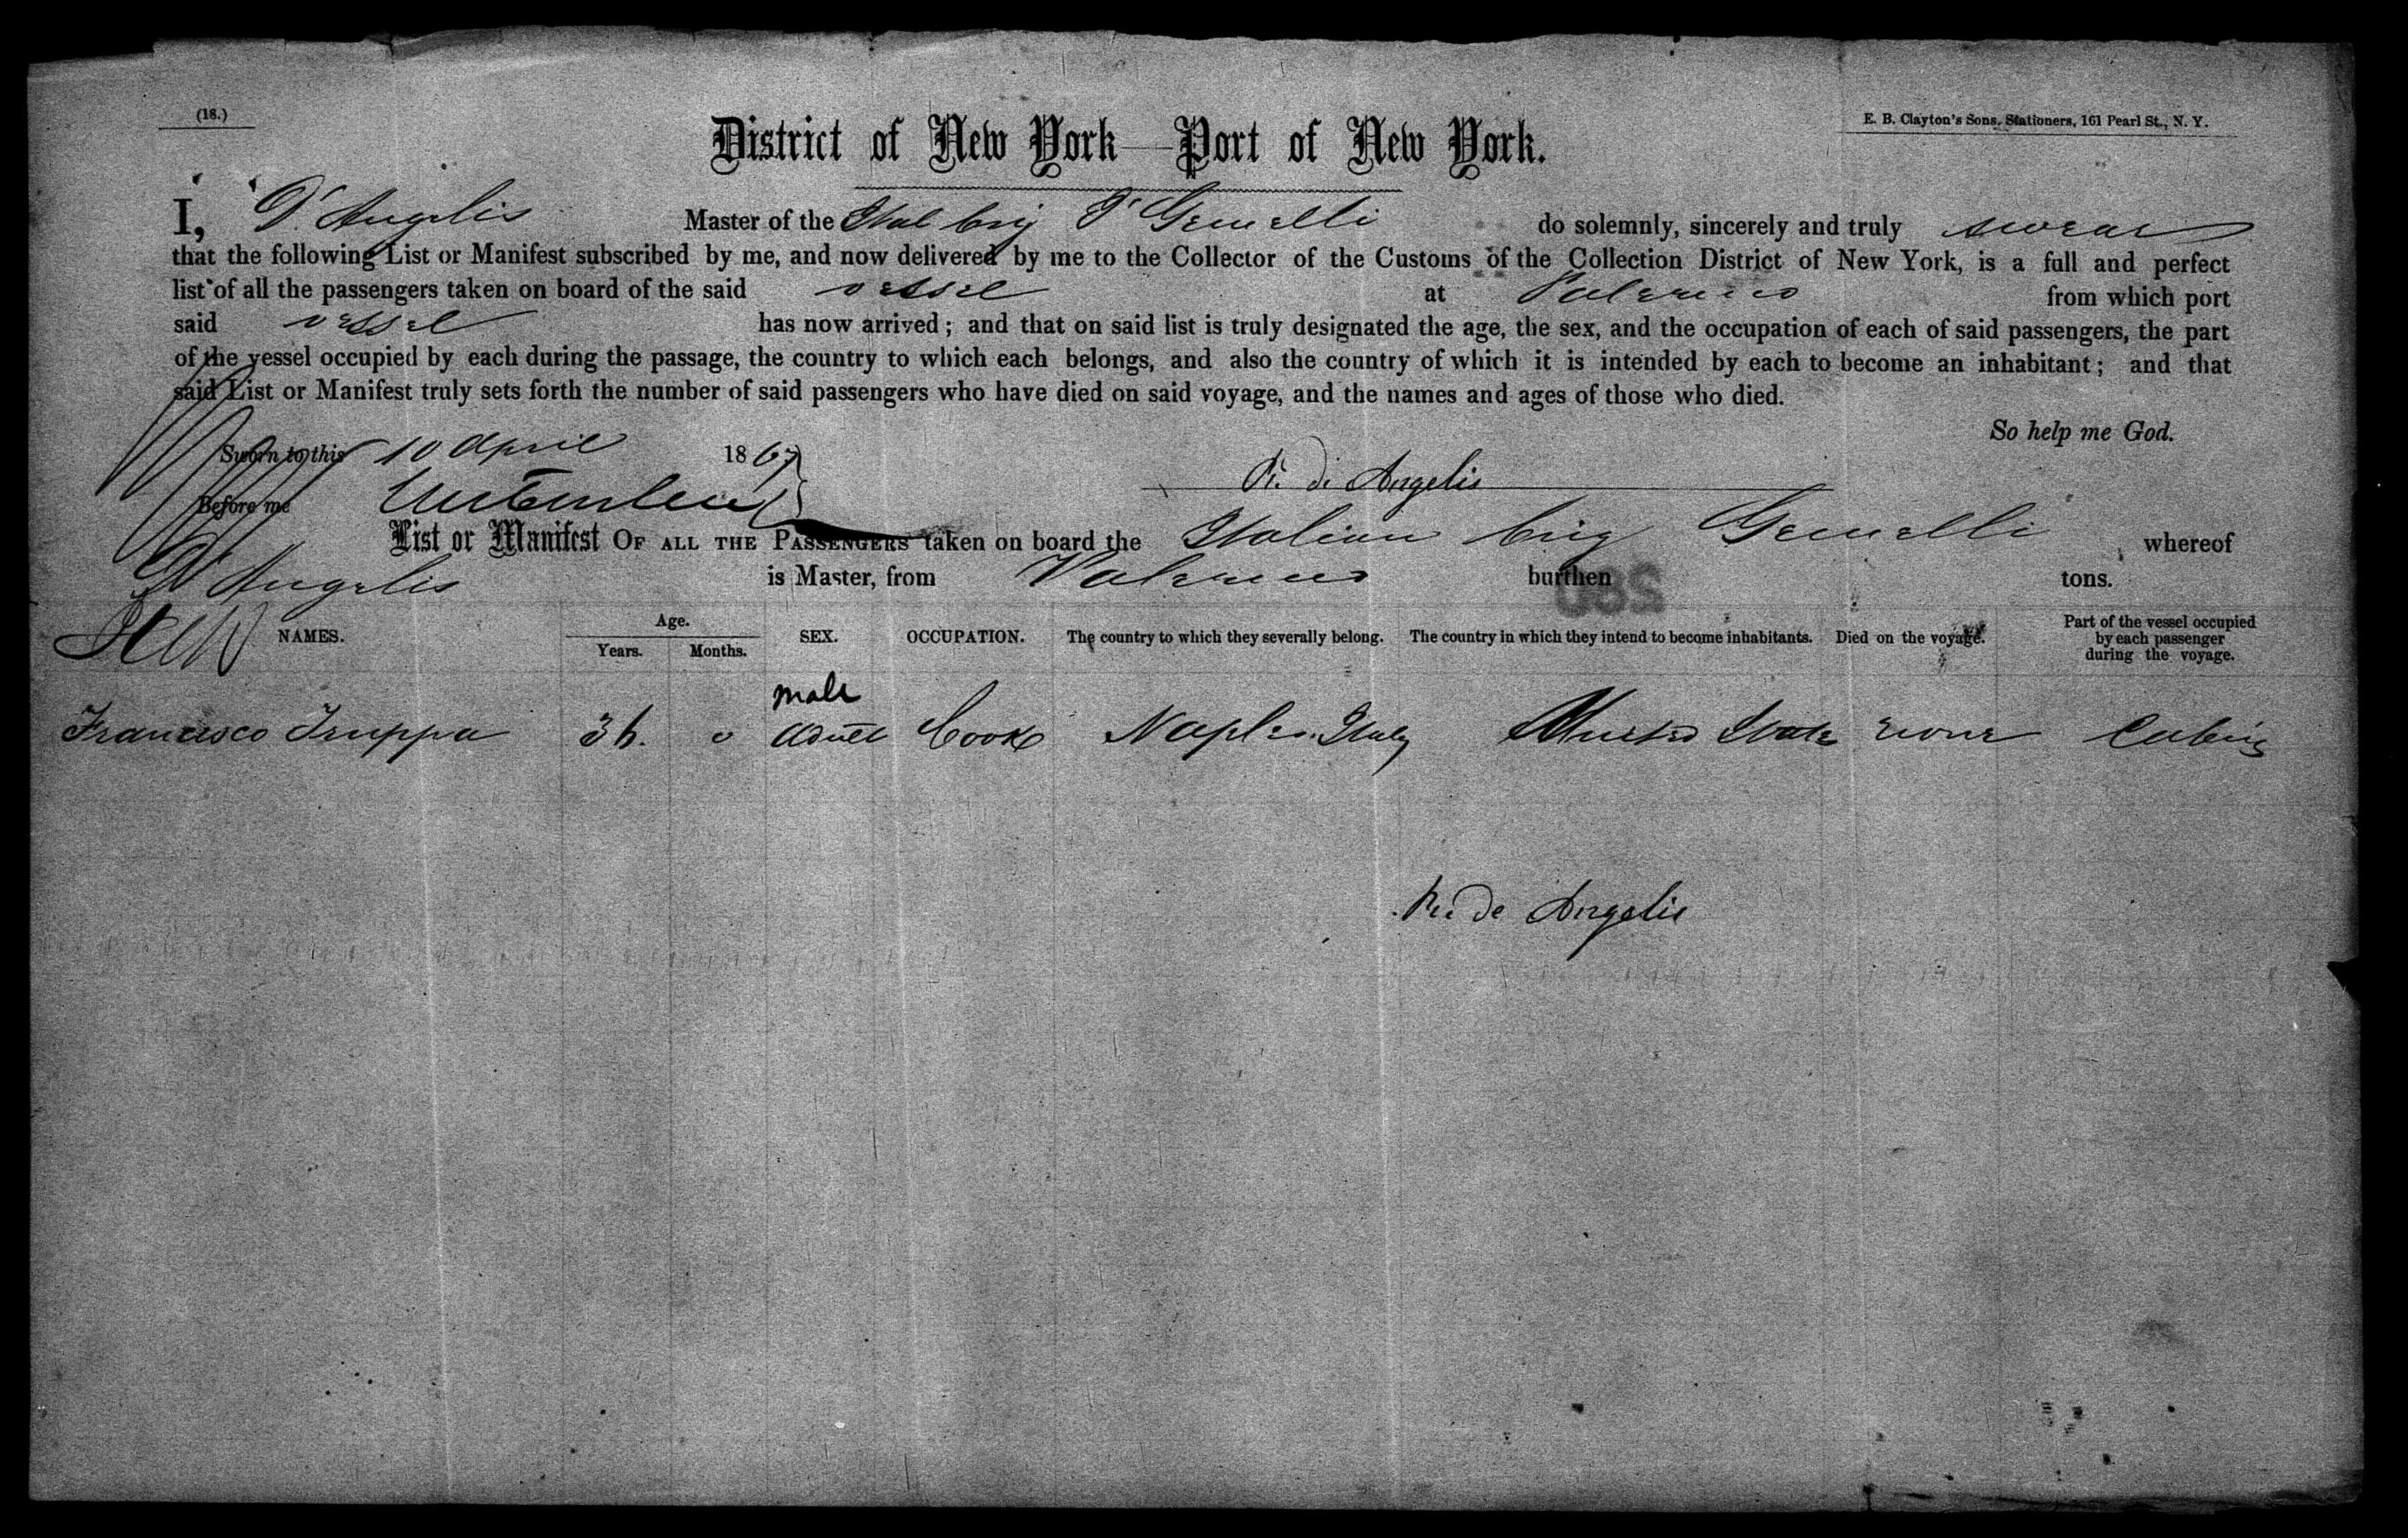 (18.)
E. B. Clayton's Sons, Stationers, 161 Pearl St., N. Y.
District of New York—Port of New York.
I, D'Angelis Master of the Ital brig I Gemelli do solemnly, sincerely and truly swear
that the following List or Manifest subscribed by me, and now delivered by me to the Collector of the Customs of the Collection District of New York, is a full and perfect
list of all the passengers taken on board of the said vessel at Palermo from which port
said vessel has now arrived; and that on said list is truly designated the age, the sex, and the occupation of each of said passengers, the part
of the vessel occupied by each during the passage, the country to which each belongs, and also the country of which it is intended by each to become an inhabitant; and that
said List or Manifest truly sets forth the number of said passengers who have died on said voyage, and the names and ages of those who died.
So help me God.
Sworn to this 10 April 1867
di Angelis
Before me
List or Manifest OF ALL THE PASSENGERS taken on board the Italian brig Gemelli whereof
D'Angelis is Master, from Palermo burthen tons.
280
NAMES. Age. Years. Months. SEX. OCCUPATION. The country to which they severally belong. The country in which they intend to become inhabitants. Died on the voyage. Part of the vessel occupied by each passenger during the voyage.
male
Francisco Truppa 36. 0 adult Cook Naples Italy United State none Cabin
de Angelis